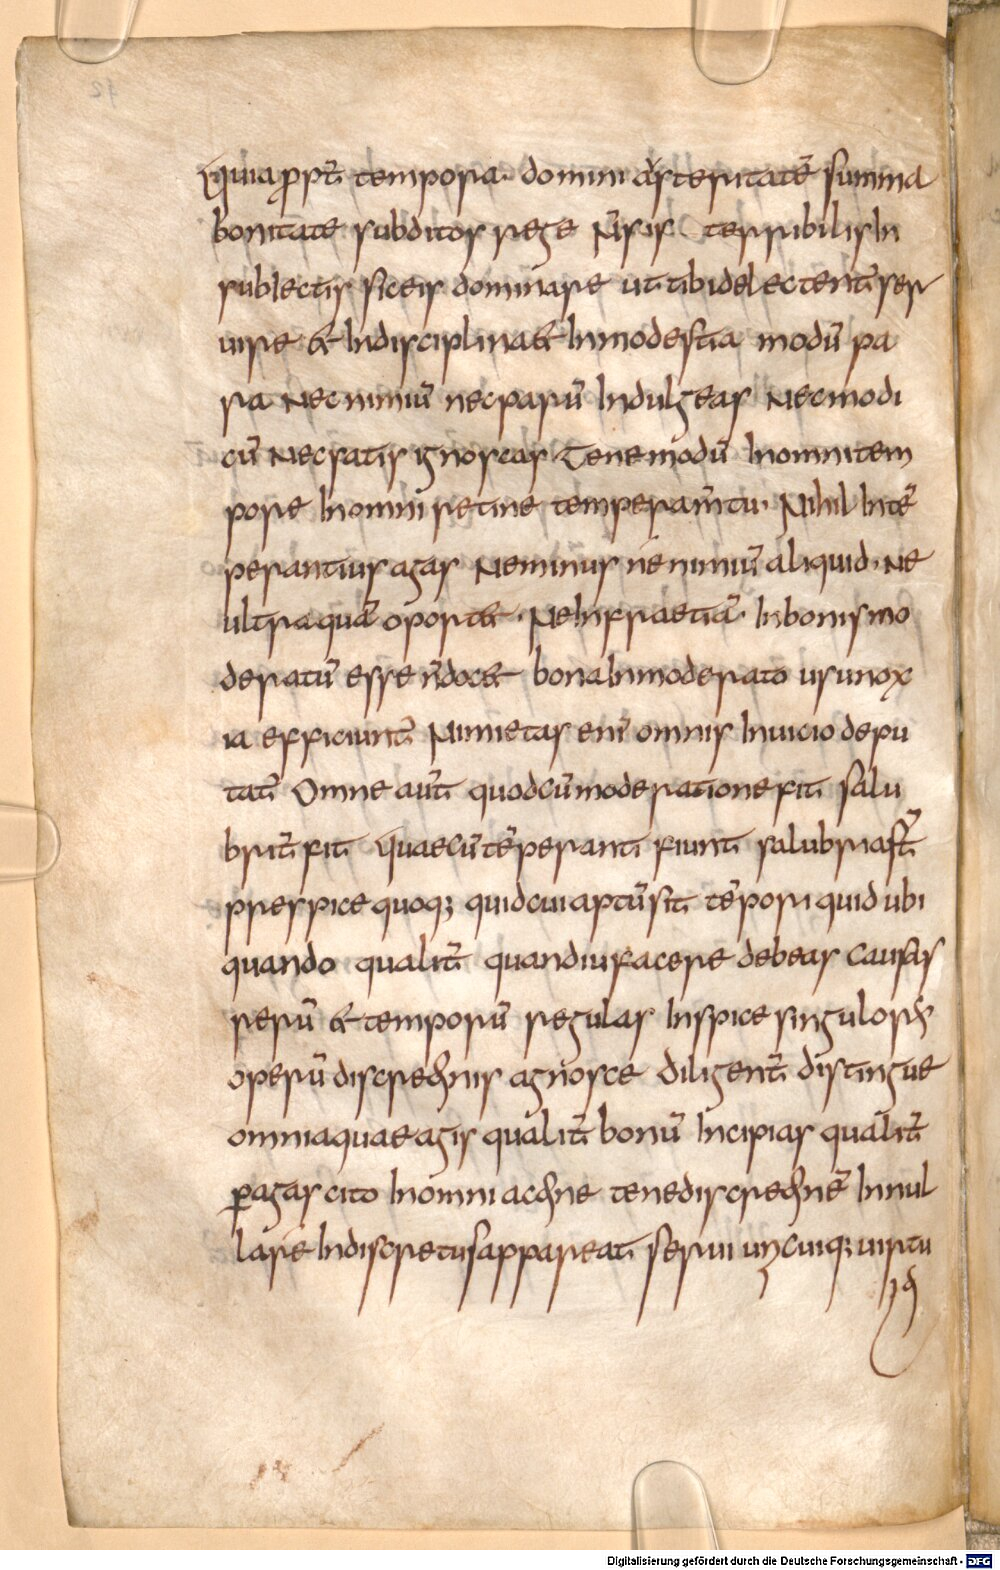 Quiaꝓpt̄ tempora· domini austeritatē summa
bonitate subditos rege N̄sis terribilis In
subIectis sic eis dominare ut tibi delectent̄ ser
uire & In disciplina & In modestia modū pa
ra Nec nimiū nec parū Indulgeas Nec modi
cū Nec satis ignoscas Tene modū In omni tem
pore In omni retine temperam̄tū· Nihil Intē
perantius agas Ne minus ne nimiū aliquid· Ne
ultra quā oport&· Ne Infra etiā· In bonis mo
deratū esse n̄ doc& bona Inmoderato usu nox
ia efficiunt̄ Nimietas enī omnis In uicio depu
tat̄ Omne aut̄ quod cū moderatione fit salu
brit̄ fit Quae cū tēperanti fiunt salubria st̄
prespice quoq; quid cui aptū sit tēpori quid ubi
quando qualit̄ quandiu facere debeas causas
rerū & temporū regulas Inspice singuloꝝ
operū discrec̄nis agnosce diligent̄ distingue
omnia quae agis qualit̄ bonū Incipias qualit̄
ꝑagas cito In omni acc̄ne tene discrec̄nē In nul
la re Indiscretus appareat serui un̄cuiq; uirtu